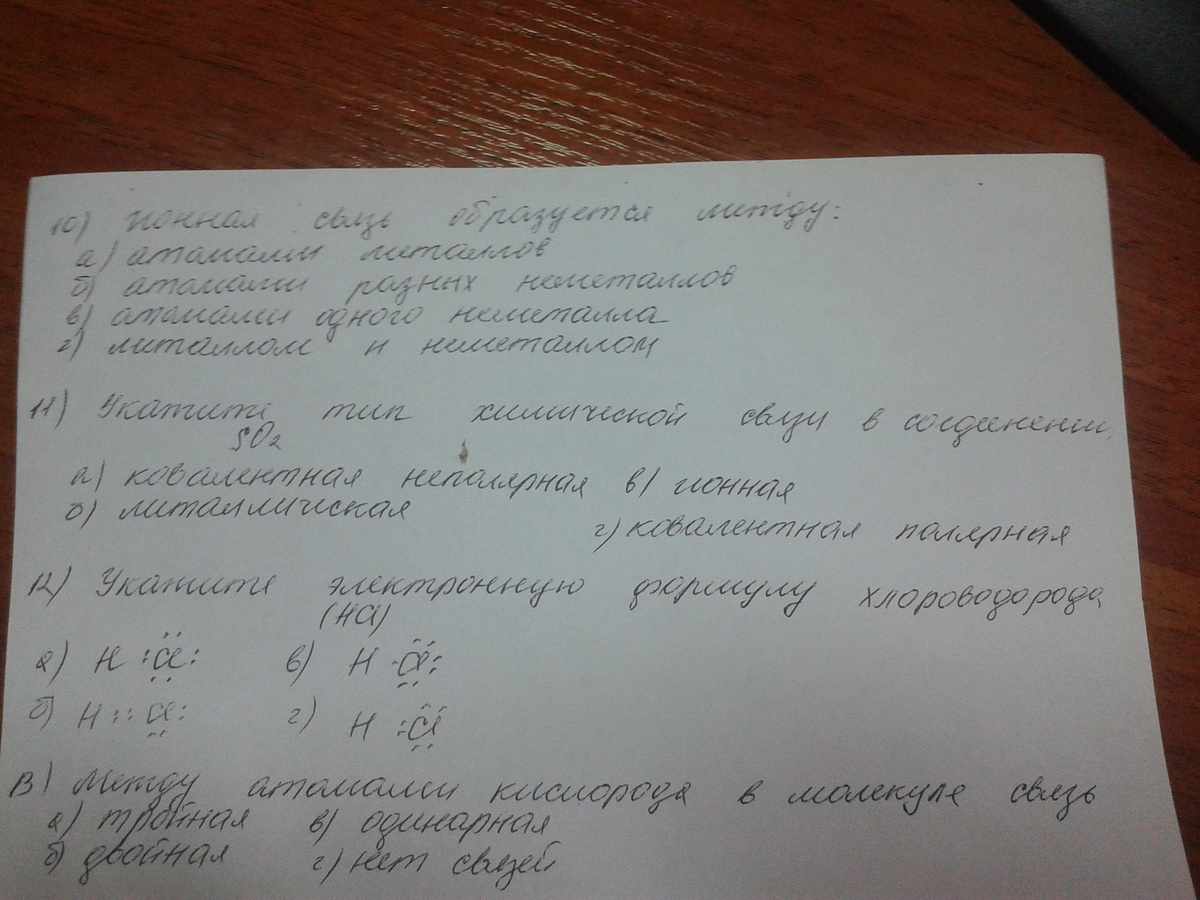 10) Ионная связь образуется между:
а) атомами металлов
б) атомами разных неметаллов
в) атомами одного неметалла
г) металлом и неметаллом
11) Укажите тип химической связи в соединении
SO₂
а) ковалентная неполярная в) ионная
б) металлическая
г) ковалентная полярная
12) Укажите электронную формулу хлороводорода
(HCl)
а) H :Cl: в) H ·Cl:
б) H :: Cl: г) H :Cl
13) Между атомами кислорода в молекуле связь
а) тройная в) одинарная
б) двойная г) нет связей